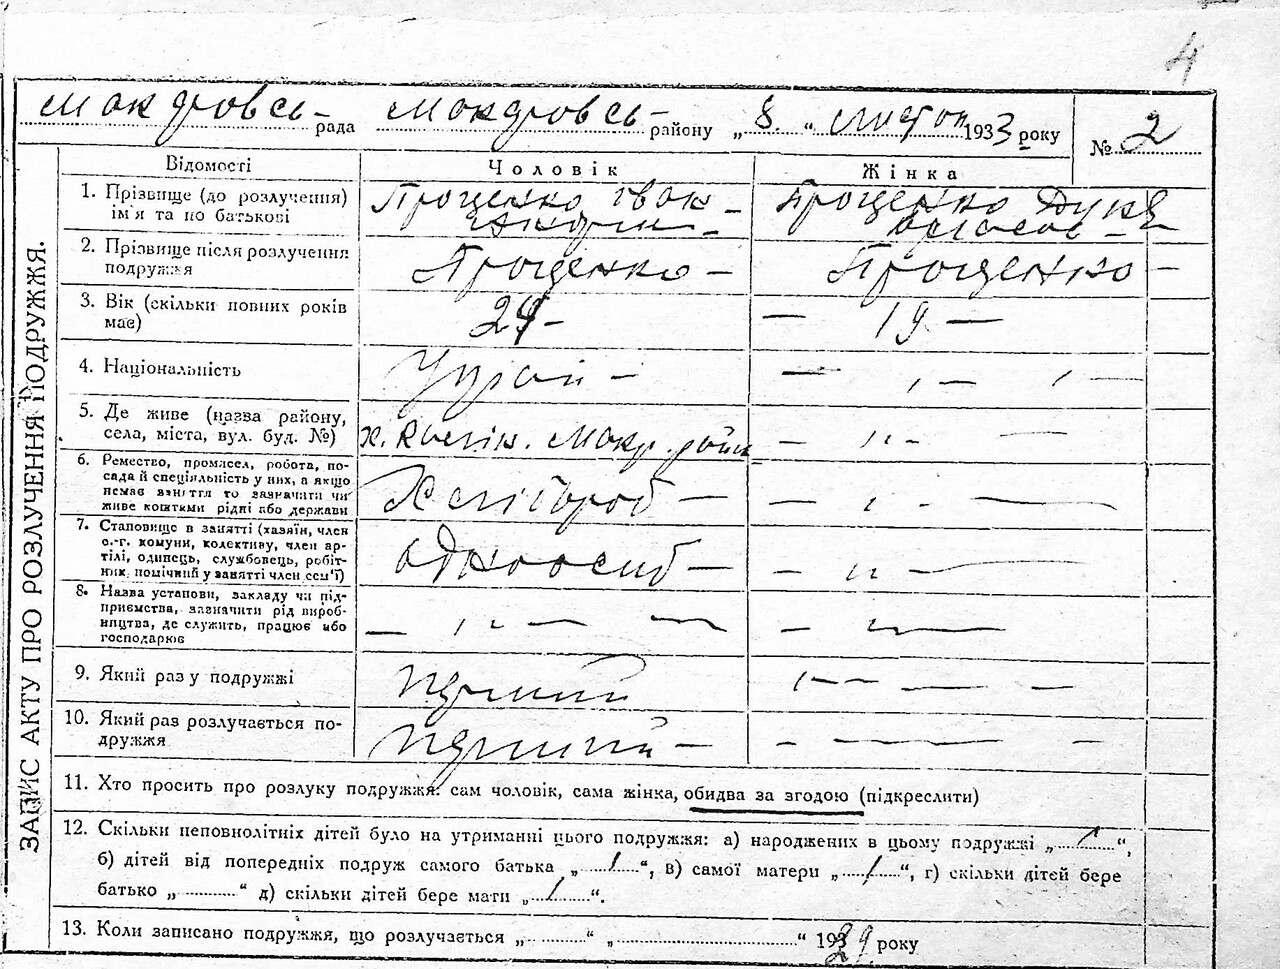 4
Мокровсь- рада Мокровсь- району „ 8. “ листоп 1933 року № 2
ЗАПИС АКТУ ПРО РОЗЛУЧЕННЯ ПОДРУЖЖЯ.
Відомості Чоловік Жінка
1. Прізвище (до розлучення) Проценко Іван Проценко
ім'я та по батькові
2. Прізвище після розлучення Проценко – Проценко –
подружжя
3. Вік (скільки повних років 24 – — 19 —
має)
4. Національність
5. Де живе (назва району,
села, міста, вул. буд. №) х. Мокр. район
6. Ремество, промисел, робота, по-
сада й спеціяльність у них, а якщо
немає заняття то зазначати чи Хлібороб –
живе коштами рідні або держави
7. Становище в занятті (хазяїн, член
с.-г. комуни, колективу, член ар-
тілі, одинець, службовець, робіт- одноосіб –
ник, помічний у занятті член сем'ї)
8. Назва установи, закладу чи під-
приємства, зазначити рід вироб-
ництва, де служить, працює або
господарює
9. Який раз у подружжі перший
10. Який раз розлучається по- перший –
дружжя
11. Хто просить про розлуку подружжя: сам чоловік, сама жінка, обидва за згодою (підкреслити)
12. Скільки неповнолітніх дітей було на утриманні цього подружжя: а) народжених в цьому подружжі „.......“,
б) дітей від попередніх подруж самого батька „.......“, в) самої матери „.......“, г) скільки дітей бере
батько „.......“ д) скільки дітей бере мати „.......“.
13. Коли записано подружжя, що розлучається „.......“ „.......“ 1929 року